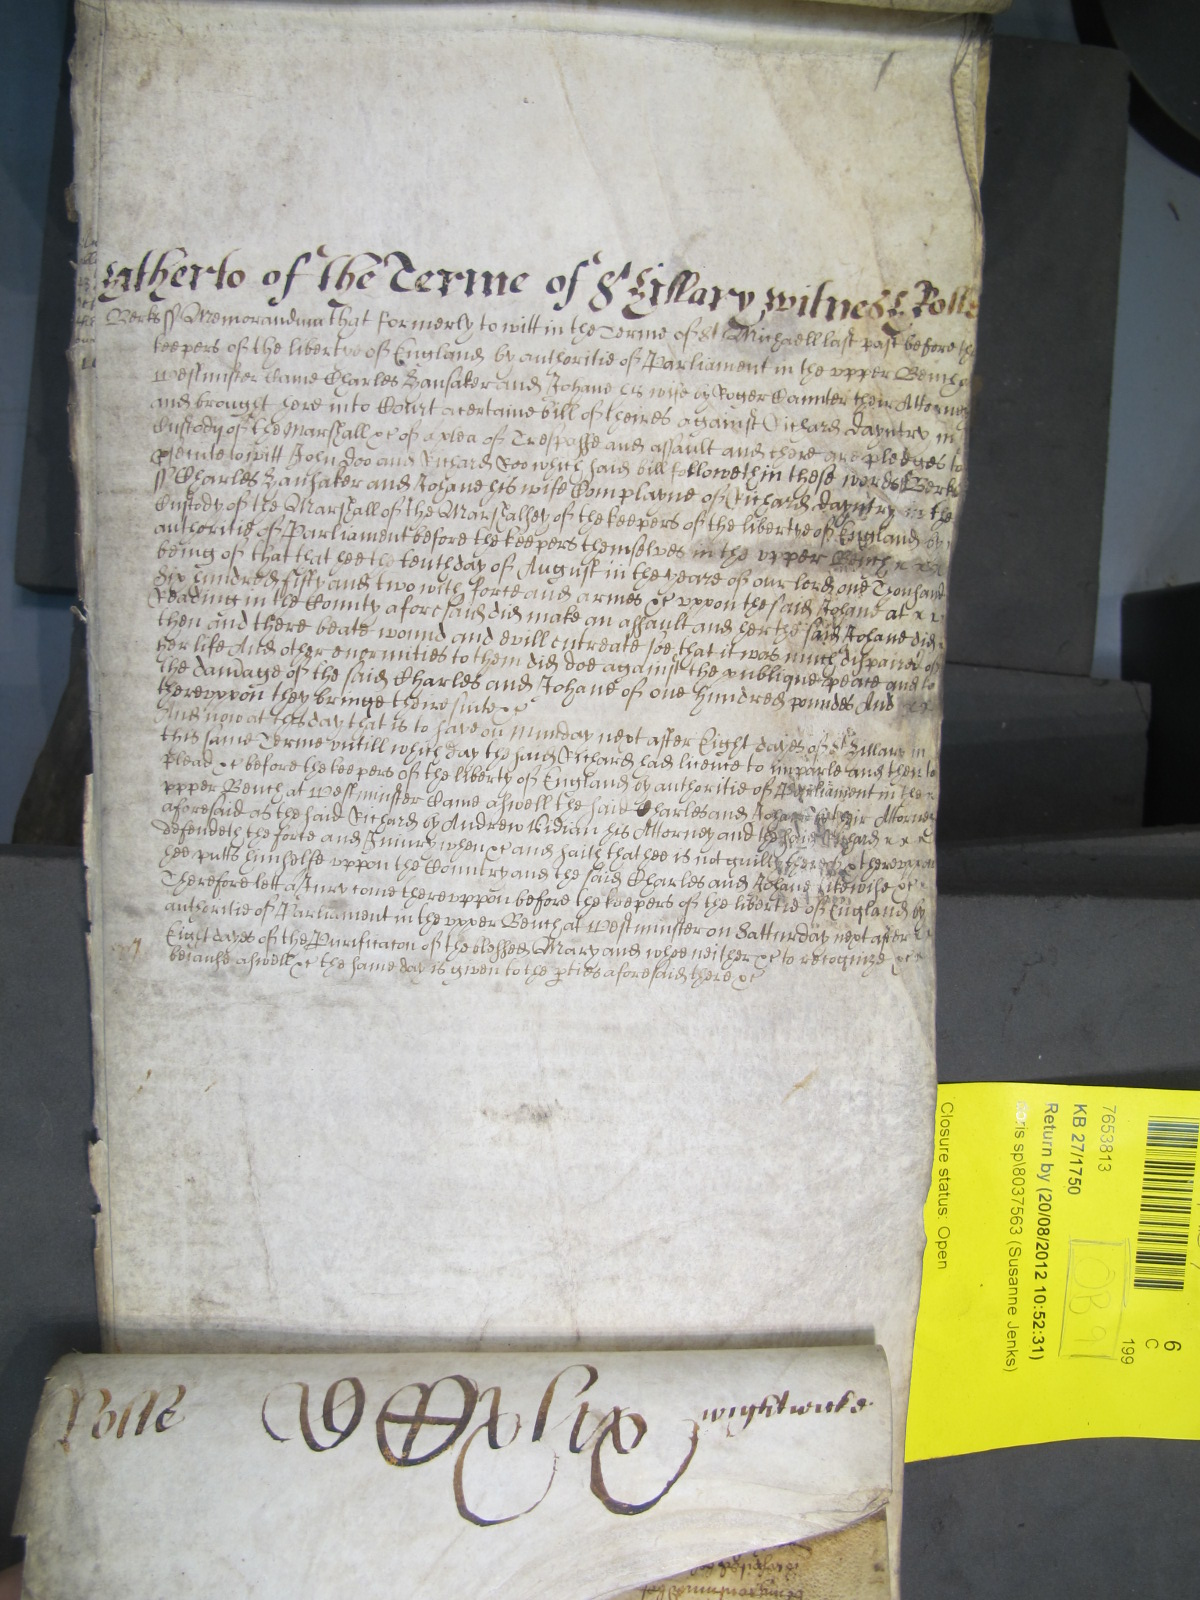 hitherto of the Terme of St Hillary witnes Rolle
Berks ss Memorandum That formerly to witt in the Terme of St Michaell last past before the
keepers of the libertye of England by authoritie of Parliament in the vpper Bench
Westminster Came Charles Hansaker and Johane his wife by Roger Counter their Attorney
and brought here into Court a certaine bill of theires against Richard dayntry in
Custody of the Marshall &c of a plea of Trespasse and assault and there are pledges to
psecute to witt John doo and Richard Roo which said bill followeth in these words Berks
ss Charles Hansaker and Johane his wife Complayne of Richard dayntry in the
Custody of the Marshall of the Marshallsey of the keepers of the libertye of England by
authoritie of Parliament before the keepers themselves in the vpper Bench
being of that that hee the tenth day of August in the yeare of our lord one Thousand
Six hundred fifty and two with force and armes &c vppon the said Johane at
Reading in the County aforesaid did make an assault and her the said Johane did
then and there beate wound and evill entreate soe that it was much dispaired of
her life And other enormities to them did doe against the publique peace and to
the damage of the said Charles and Johane of one hundred pounds And
therevppon they bringe theire suite &c
And now at this day that is to say on Munday next after Eight dayes of St Hillary in
this same Terme vntill which day the said Richard had licence to imparle and then to
plead &c before the keepers of the liberty of England by authoritie of Parliament in the
vpper Bench at Westminster Came aswell the said Charles and Johane by their Attorney
aforesaid as the said Richard by Andrew Kidian his Attorney and the said Richard
defendeth the force and Iniury when &c and saith that hee is not guilty thereof &c therevppon
hee putts himselfe vppon the Country and the said Charles and Johane likewise &c
Therefore lett a Jury come therevppon before the keepers of the libertie of England by
authoritie of Parliament in the vpper Bench at Westminster on Satturday next after
Eight dayes of the Purificaton of the blessed Mary and whoe neither &c to recognize &c
because aswell &c the same day is given to the pties aforesaid there &c
Rolle
wightwicke
6
C
199
7653813
KB 27/1750
OB 9
Return by (20/08/2012 10:52:31)
sp\8037563 (Susanne Jenks)
Closure status: Open